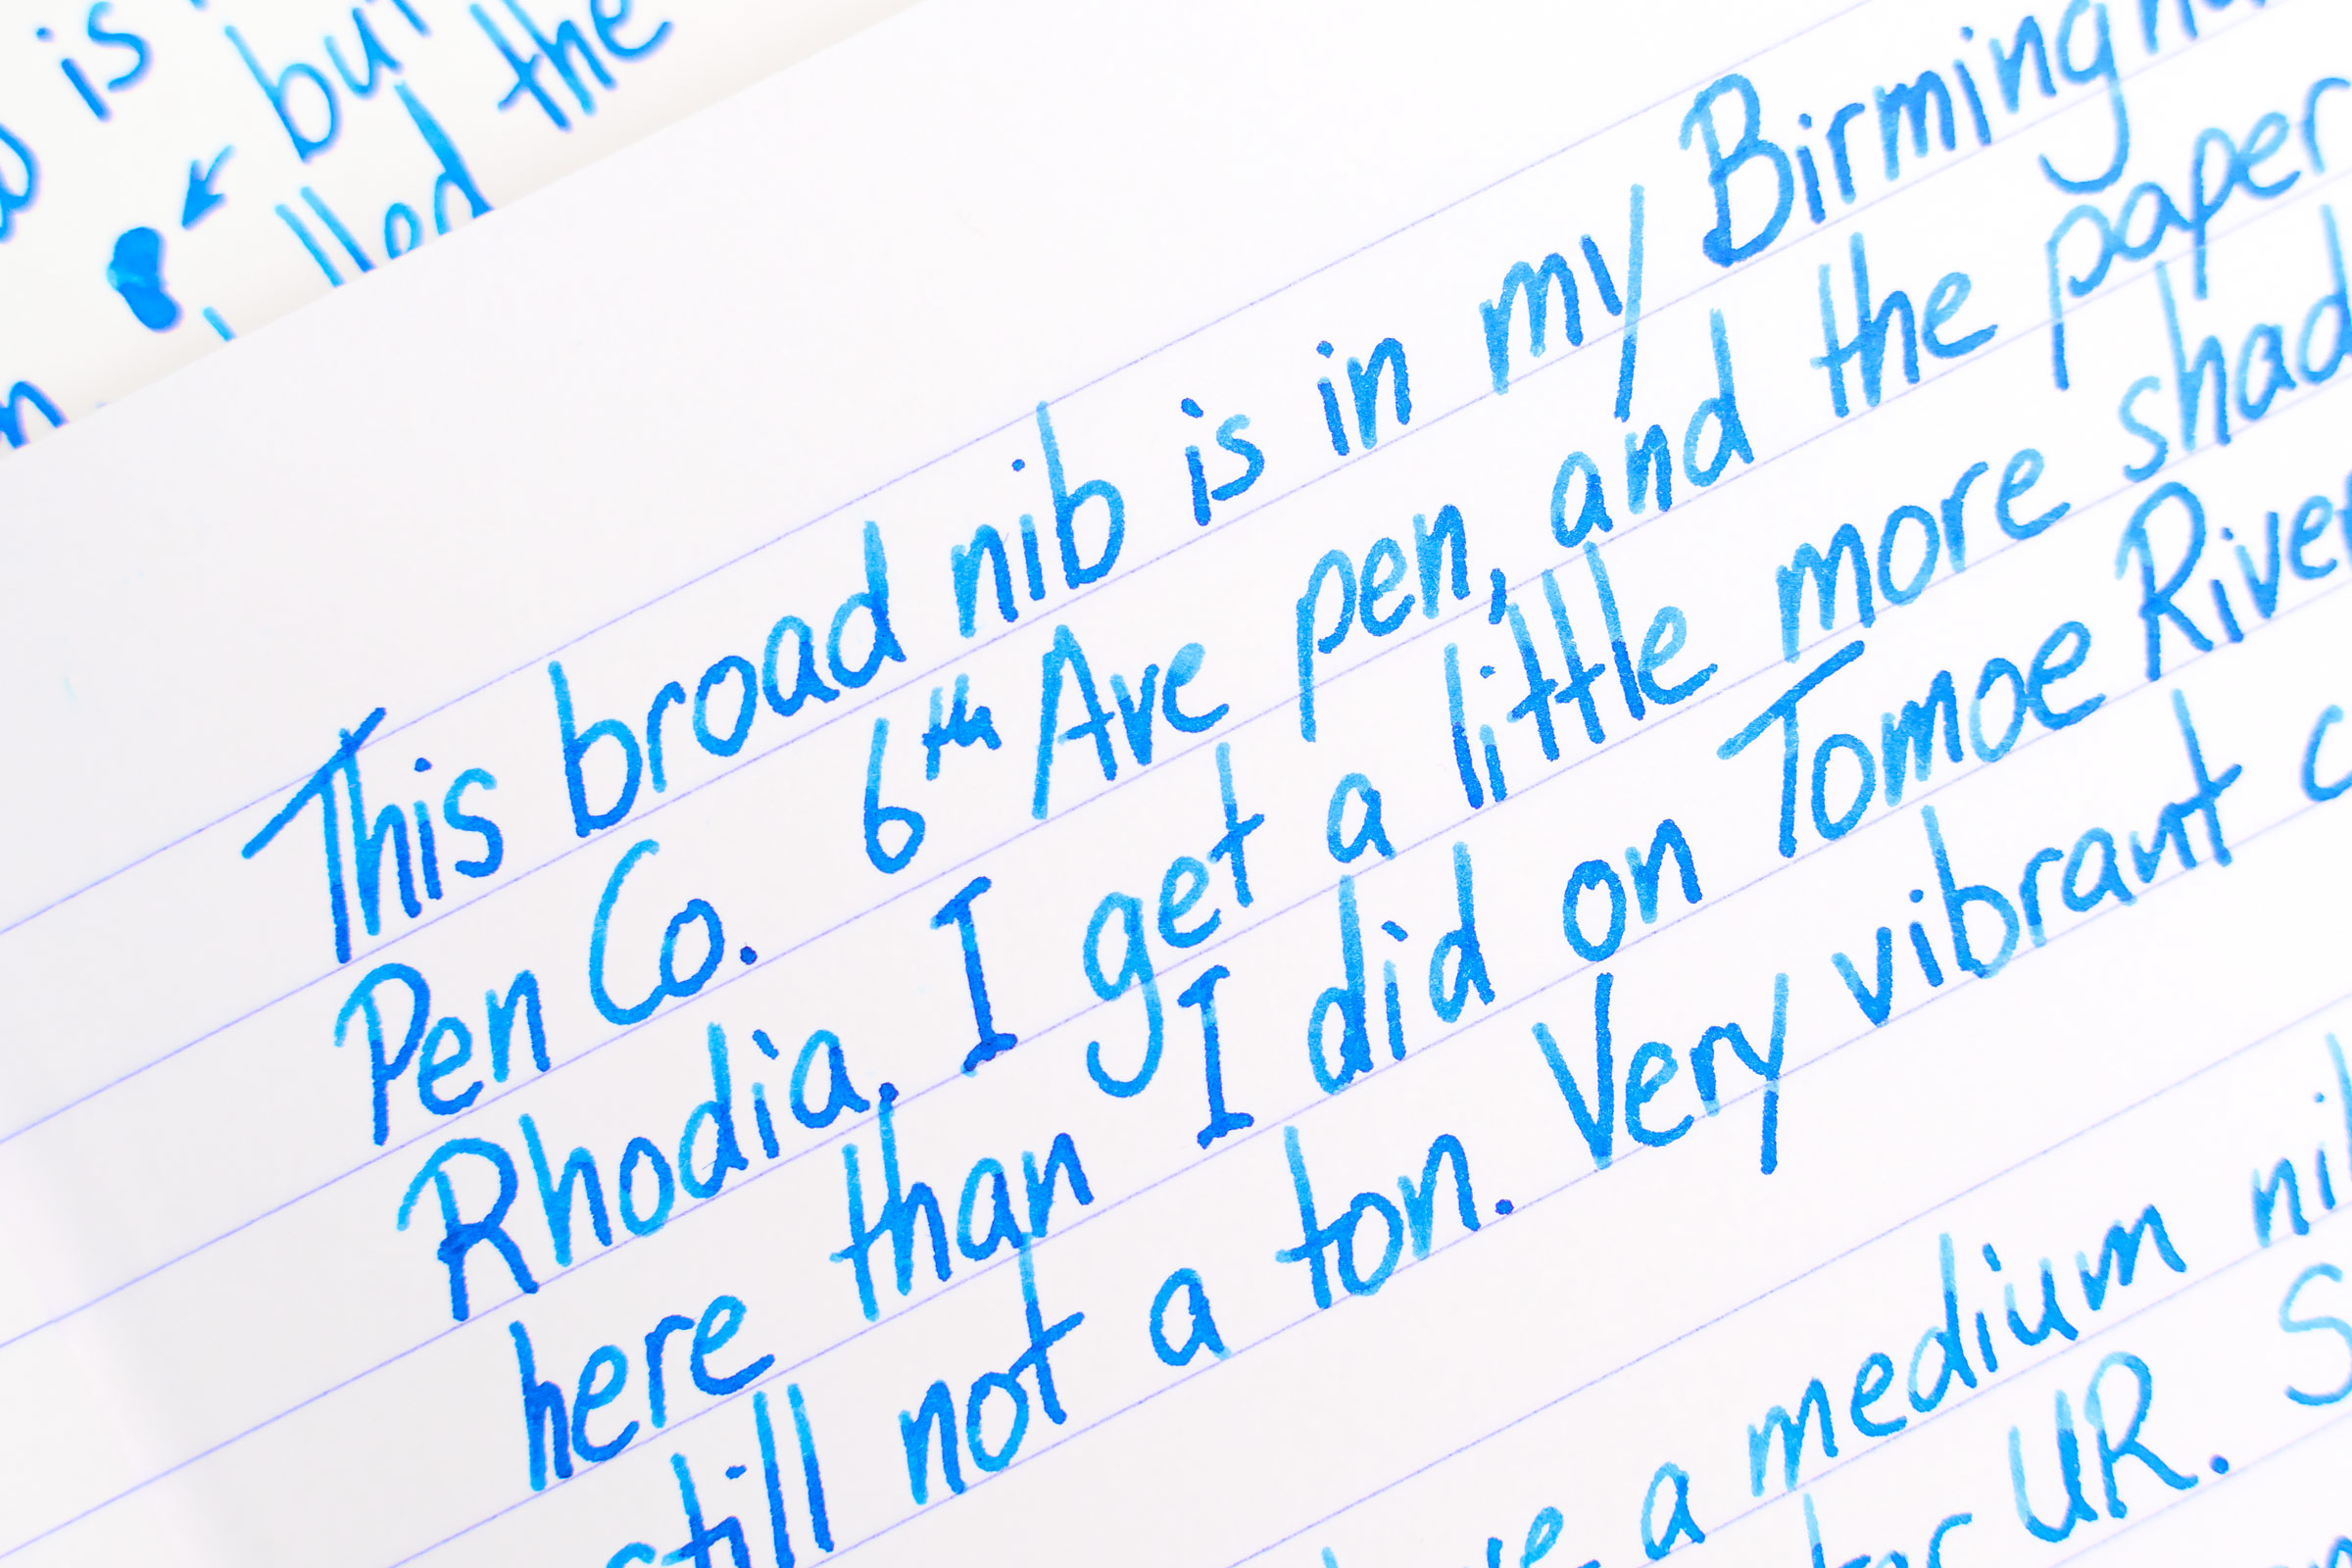 is but
the
lled
This broad nib is in my
Pen Co. 6th Ave pen, and the paper
Rhodia. I get a little more
here than I did on Tomoe
still not a ton. Very vibrant
a medium
UR.